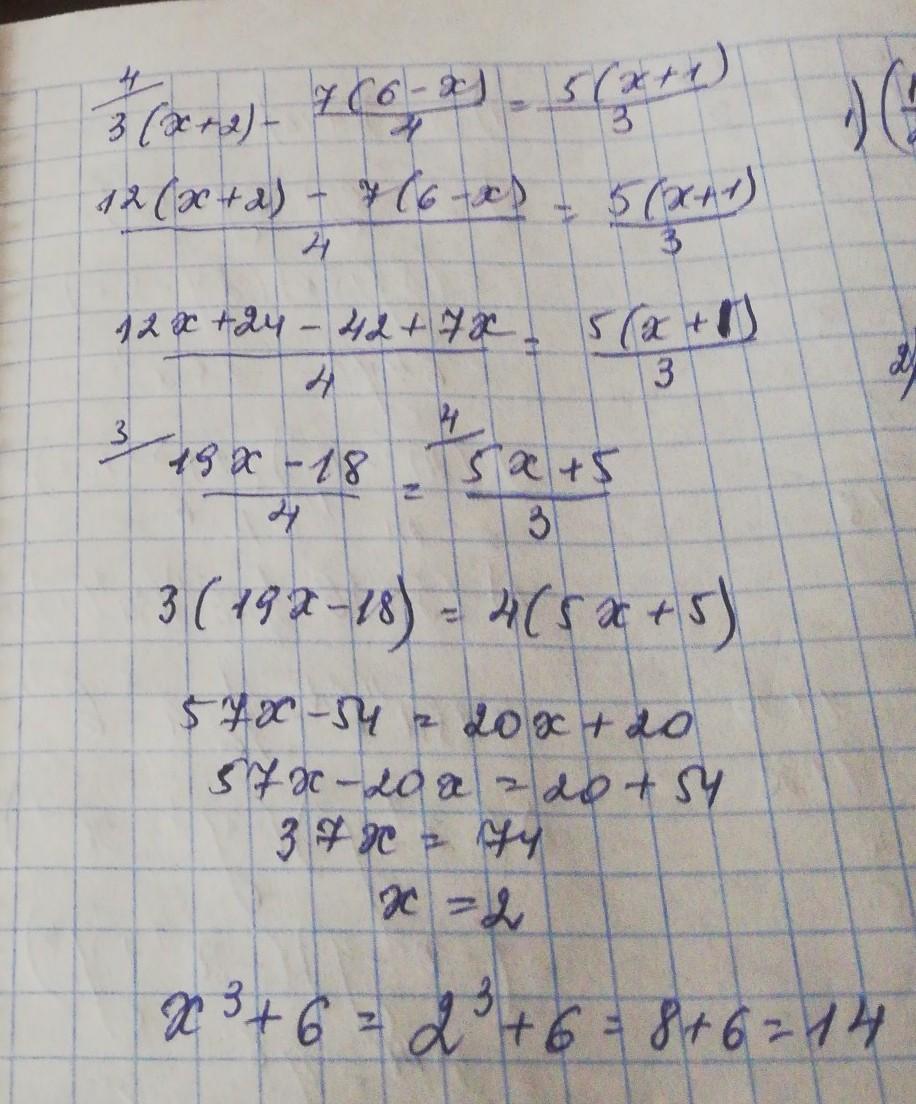 4/ 3(x+2) - 7(6-x)/4 = 5(x+1)/3
1) (
12(x+2) - 7(6-x) / 4 = 5(x+1)/3
12x+24-42+7x / 4 = 5(x+1)/3
2)
3/ 19x-18 / 4 = 4/ 5x+5 / 3
3(19x-18) = 4(5x+5)
57x-54 = 20x+20
57x-20x = 20+54
37x = 74
x = 2
x³+6 = 2³+6 = 8+6 = 14